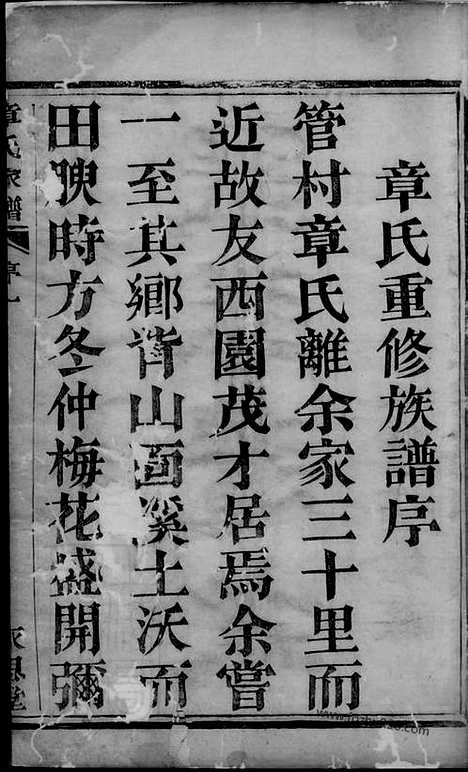 章氏重修族譜序
管村章氏離余家三十里而
近故友西園茂才居焉余嘗
一至其鄉背山面溪土沃而
田腴時方冬仲梅花盛開彌
章氏家譜
序一